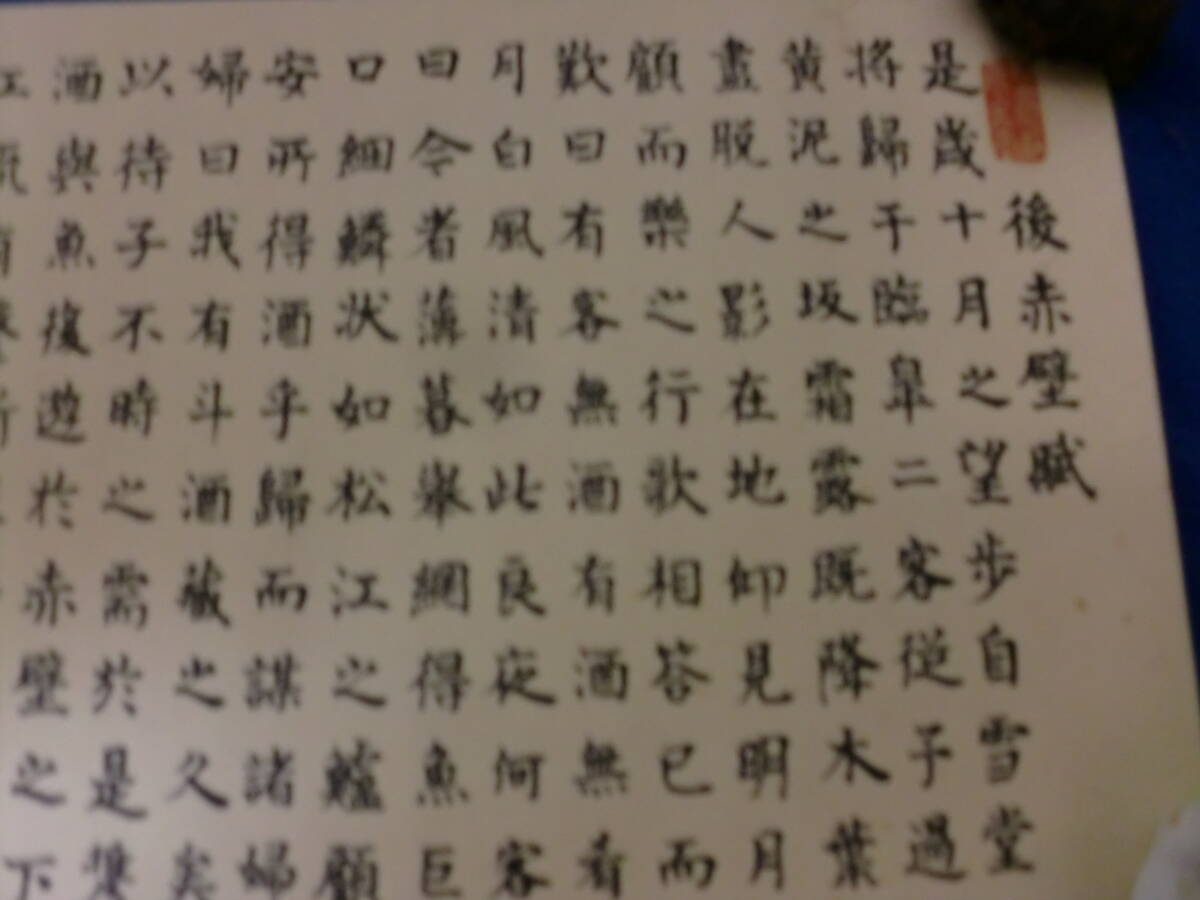 後赤壁賦
是歲十月之望步自雪堂
將歸于臨皐二客從予過
黃泥之坂霜露既降木葉
盡脫人影在地仰見明月
顧而樂之行歌相答已而
歎曰有客無酒有酒無肴
月白風清如此良夜何客
曰今者薄暮舉網得魚巨
口細鱗狀如松江之鱸顧
安所得酒乎歸而謀諸婦
婦曰我有斗酒藏之久矣
以待子不時之需於是携
酒與魚復遊於赤壁之下
江流有聲